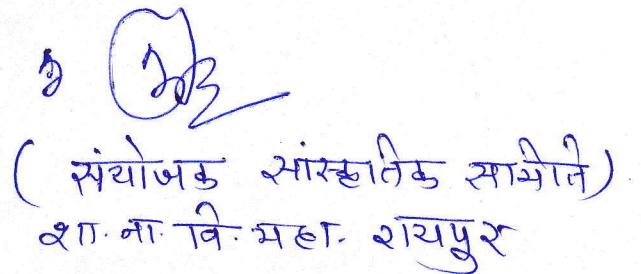 ( संयोजक सांस्कृतिक समिति)
शा. ना. वि. महा. रायपुर